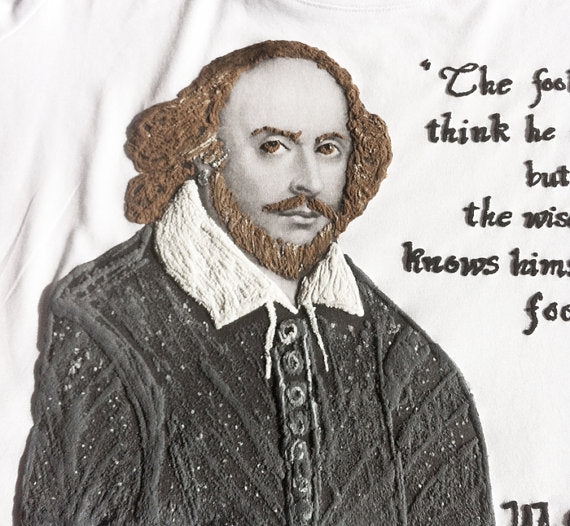 "The fool
think he
but
the wise
knows hims
foo